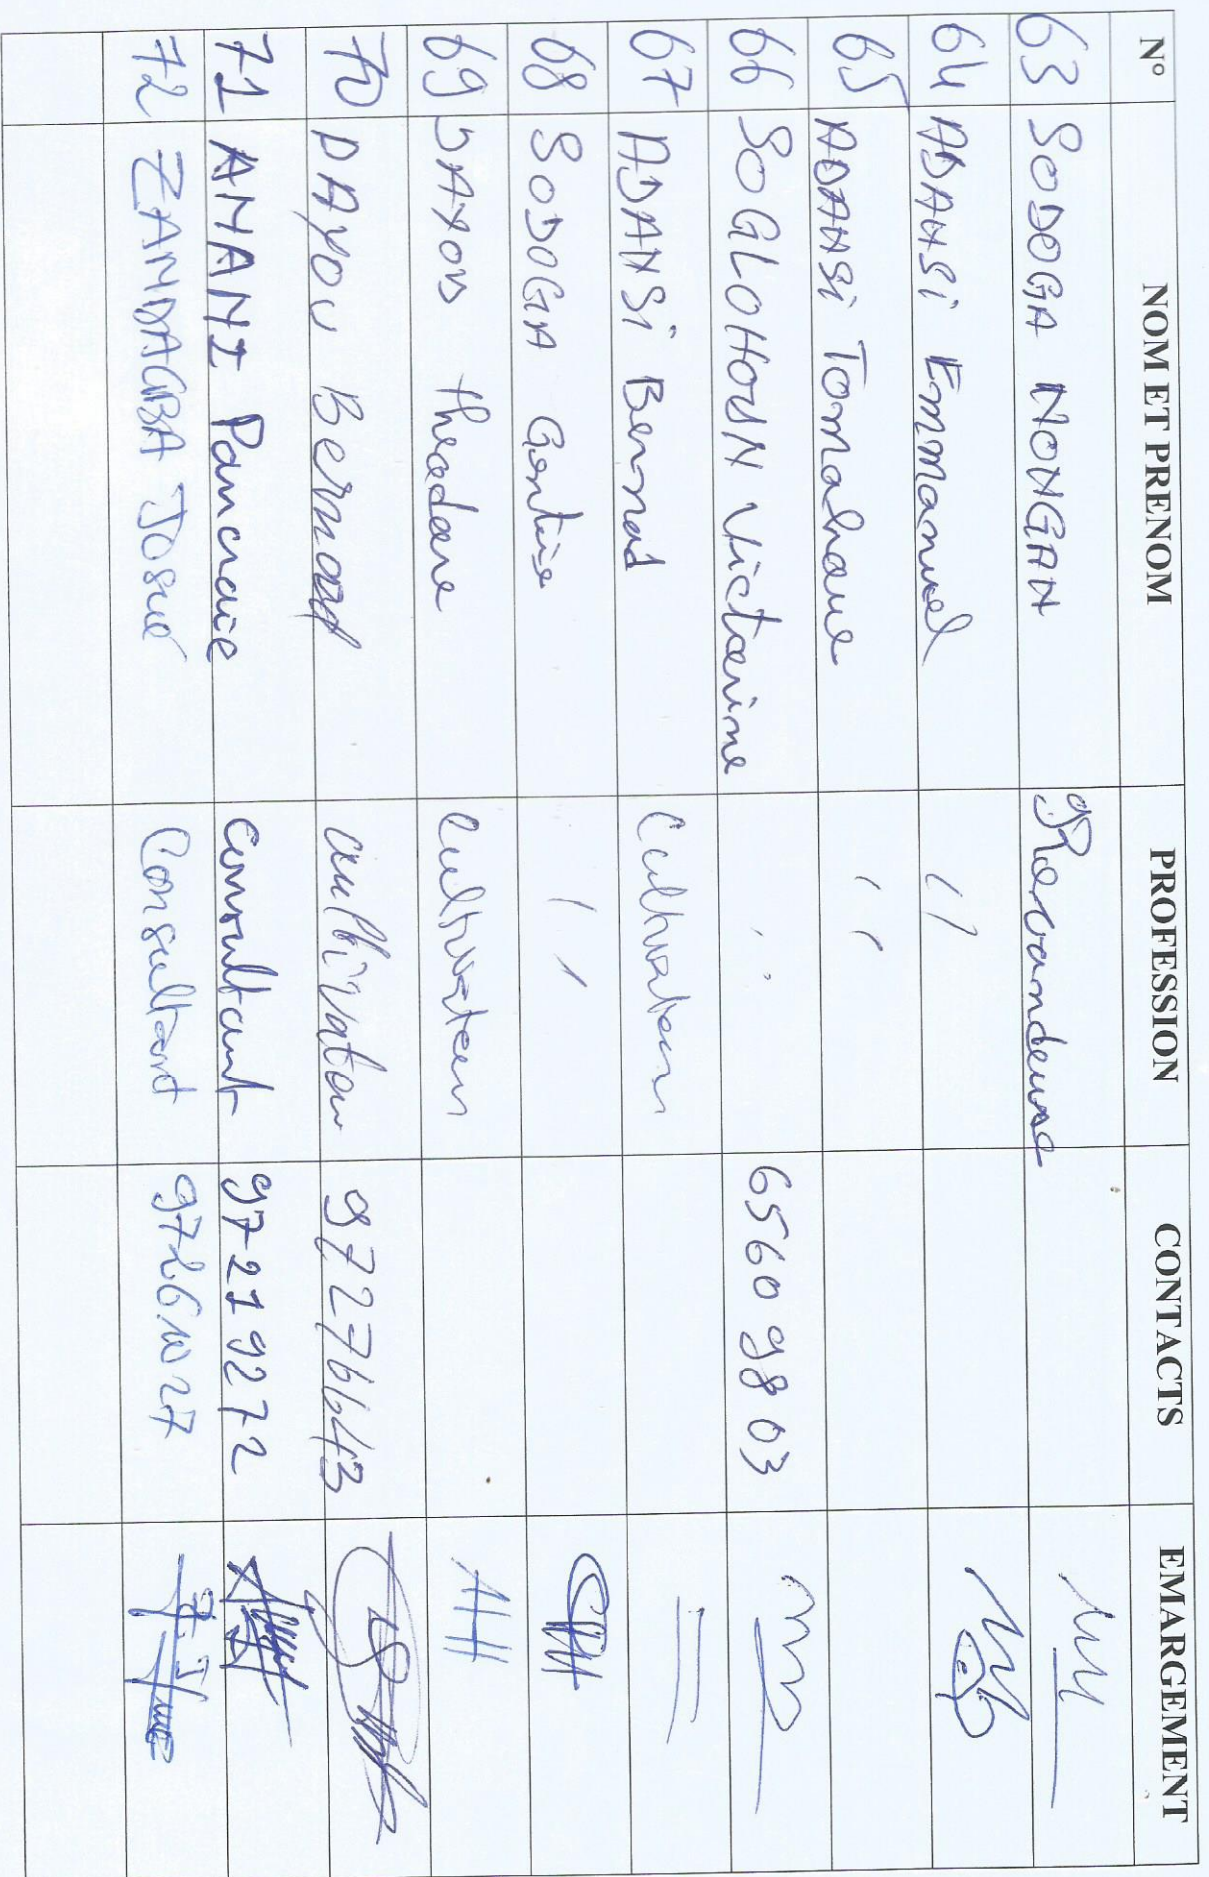 N° NOM ET PRENOM PROFESSION CONTACTS EMARGEMENT
63 SODOGA NONGAN Revandeuse
64 ADANSi Emmanuel //
65 ADANSi Tomahaue ''
66 SOGLOHOUN Victorine '' 65609803
67 ADANSi Bernad Cultivateur
68 SODOGA Gentise //
69 DAYOU theodore Cultivateur
70 DAYOU Bernard cultivateur 97276643
71 ANANI Pancracie consultant 97219272
72 ZANDAGBA Josué Consultant 97261027